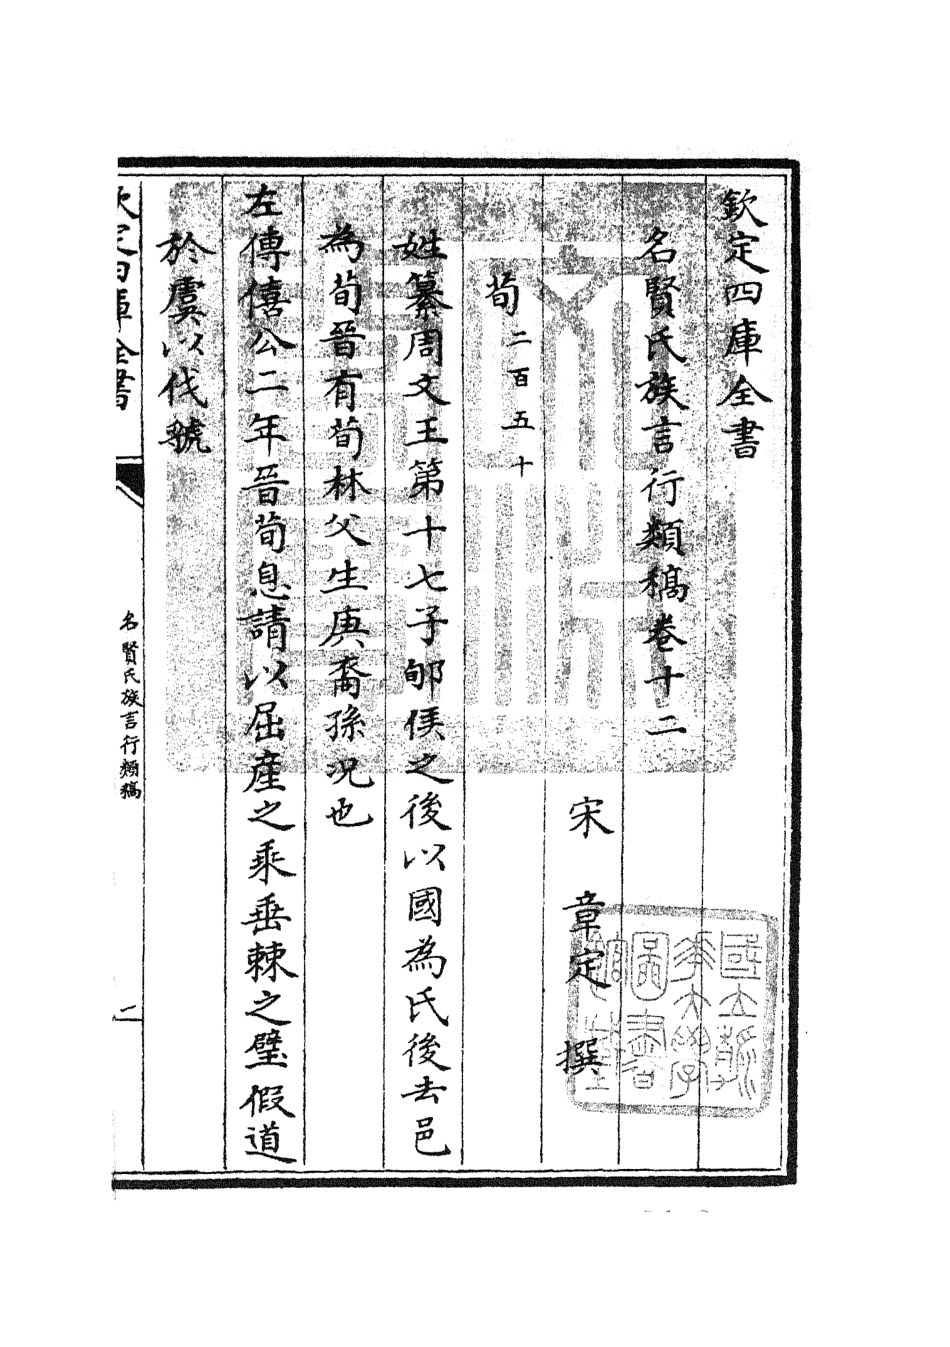 欽定四庫全書
名賢氏族言行類稿卷十二
宋 章定 撰
荀 二百五十
姓纂周文王第十七子郇侯之後以國為氏後去邑
為荀晉有荀林父生庚裔孫況也
左傳僖公二年晉荀息請以屈產之乘垂棘之璧假道
於虞以伐虢
欽定四庫全書
名賢氏族言行類稿
一